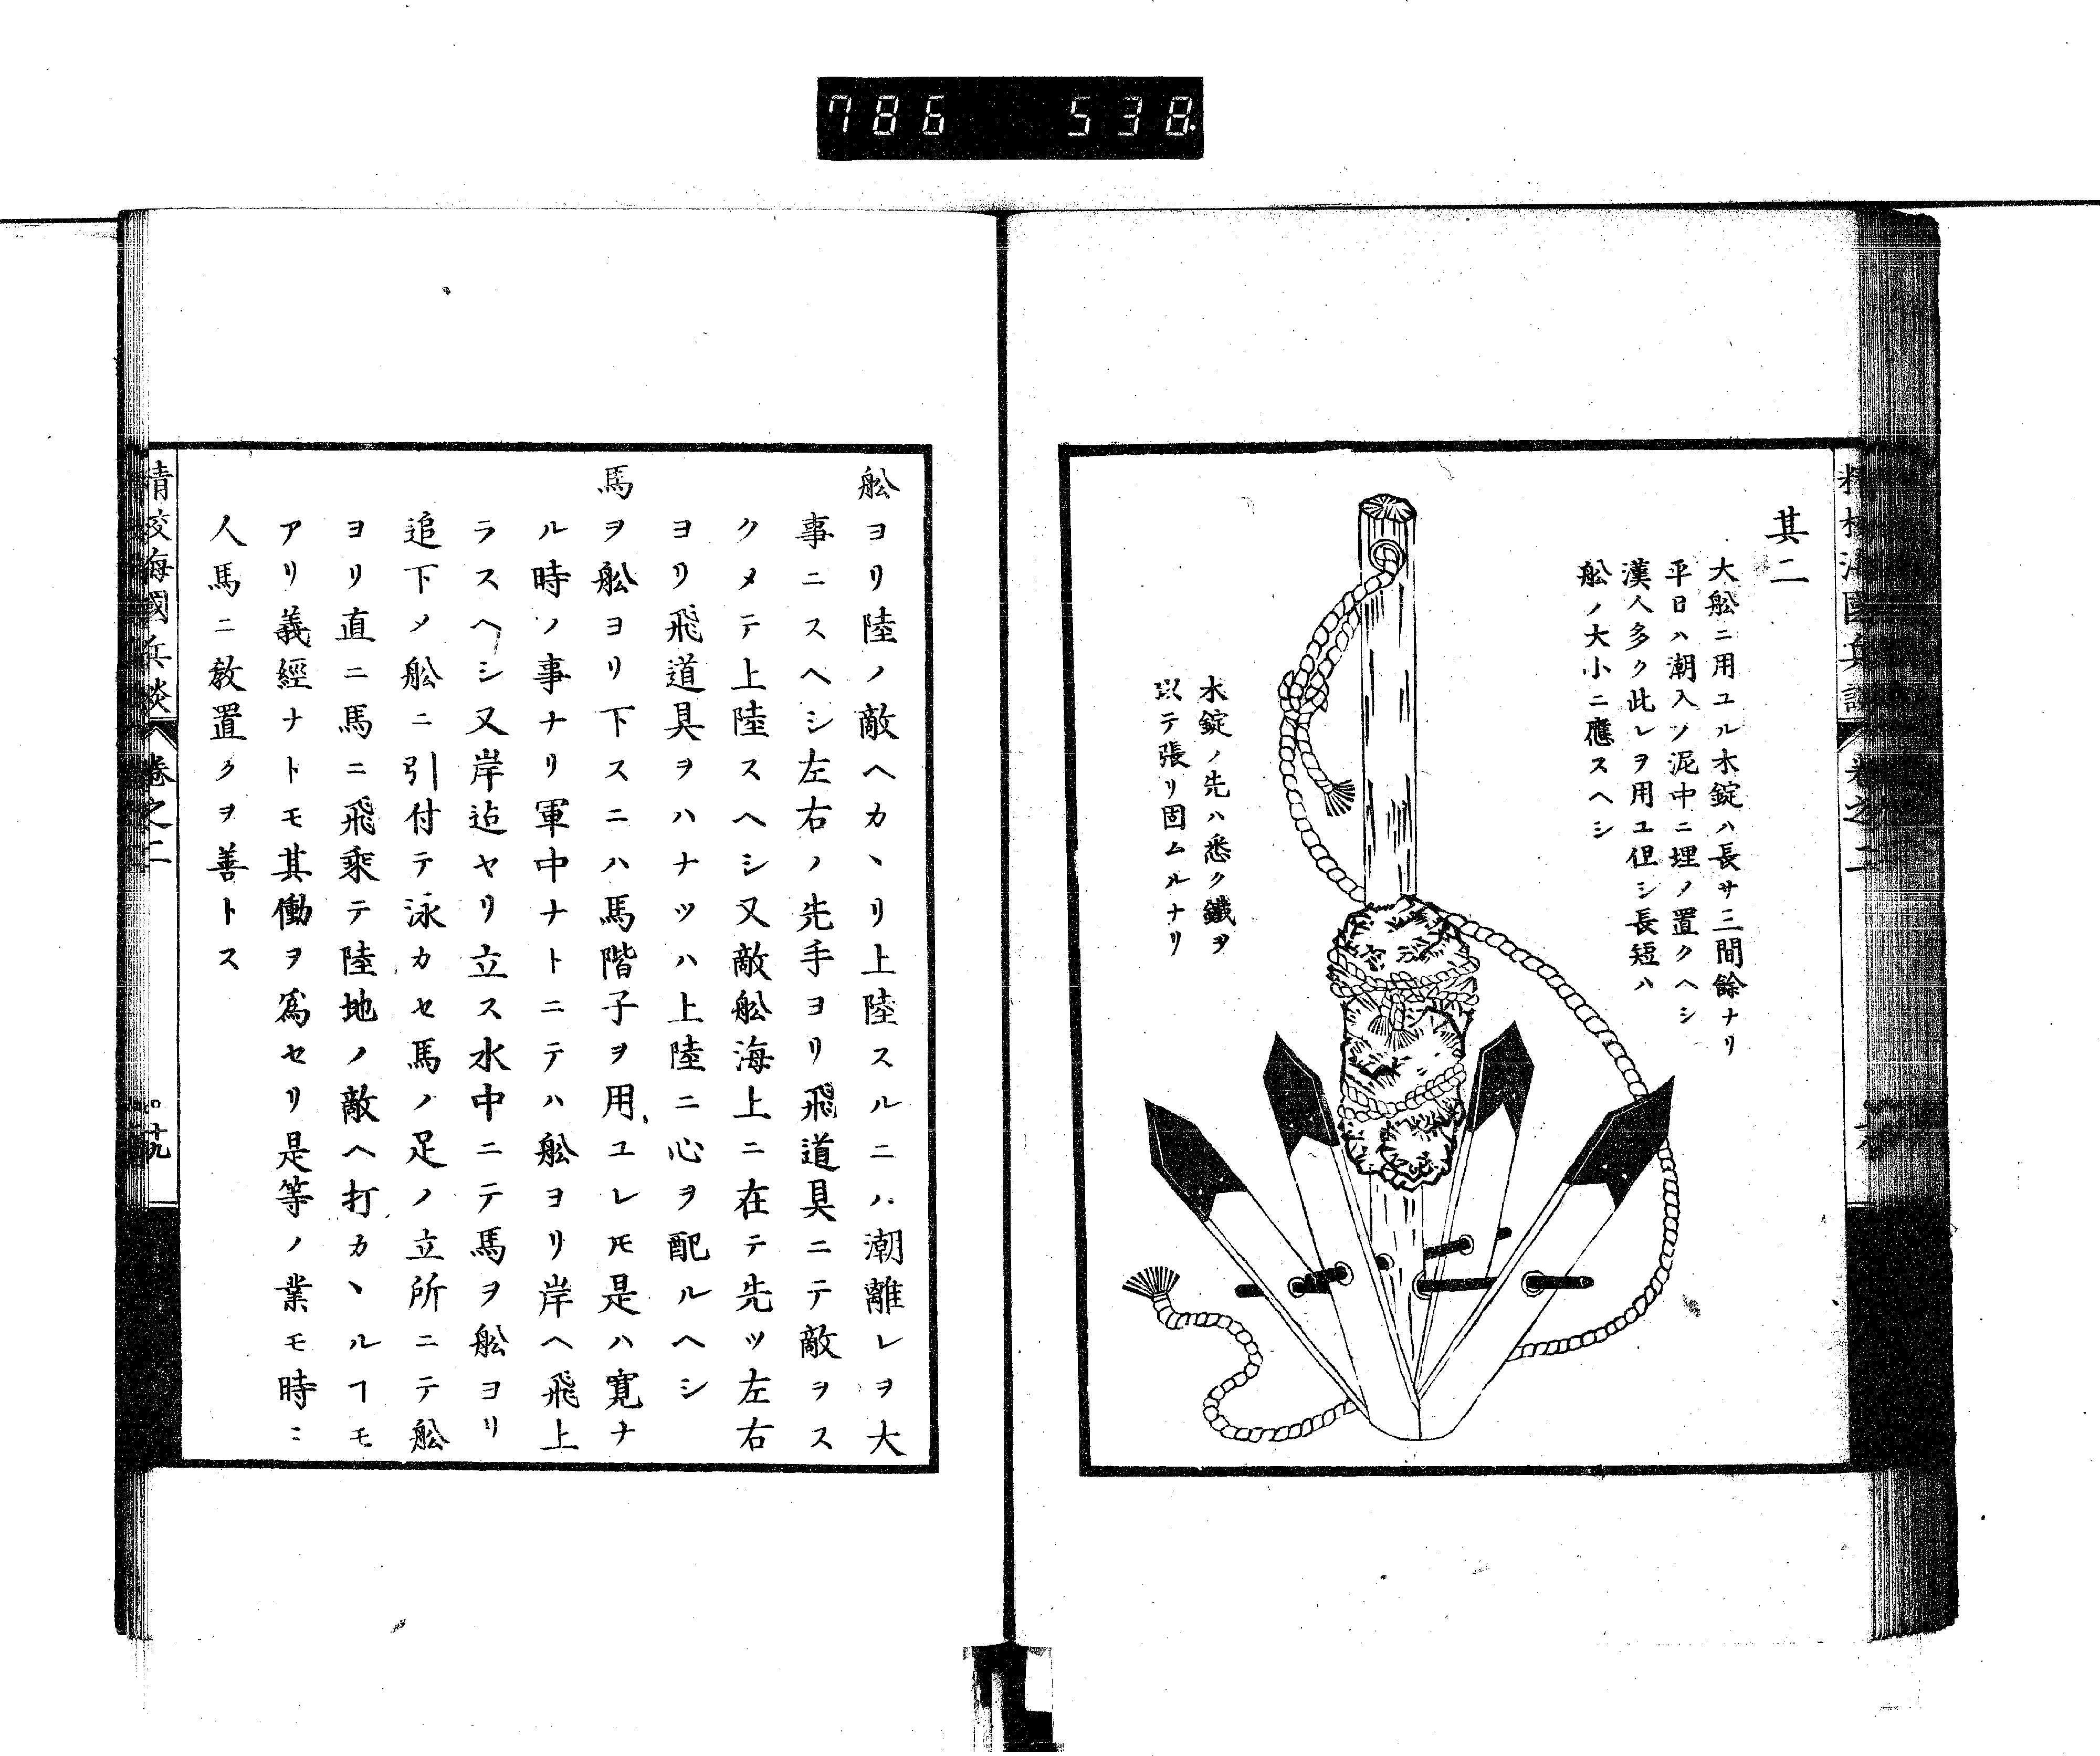 786 538
其二
大舩ニ用ユル木錠ハ長サ三間餘ナリ
平日ハ潮入ノ泥中ニ埋メ置クヘシ
漢人多ク此レヲ用ユ但シ長短ハ
舩ノ大小ニ應スヘシ
木錠ノ先ハ悉ク鐵ヲ
以テ張リ固ムルナリ
舩ヨリ陸ノ敵ヘカヽリ上陸スルニハ潮離レヲ大
事ニスヘシ左右ノ先手ヨリ飛道具ニテ敵ヲス
クメテ上陸スヘシ又敵舩海上ニ在テ先ツ左右
ヨリ飛道具ヲハナツハ上陸ニ心ヲ配ルヘシ
馬ヲ舩ヨリ下スニハ馬階子ヲ用ユレ𪜈是ハ寛ナ
ル時ノ事ナリ軍中ナトニテハ舩ヨリ岸ヘ飛上
ラスヘシ又岸近ヤリ立ス水中ニテ馬ヲ舩ヨリ
追下ノ舩ニ引付テ泳カセ馬ノ足ノ立所ニテ舩
ヨリ直ニ馬ニ飛乘テ陸地ノ敵ヘ打カヽルヿモ
アリ義經ナトモ其働ヲ爲セリ是等ノ業モ時ニ
人馬ニ教置クヲ善トス
精校海國兵談 卷之二 十九